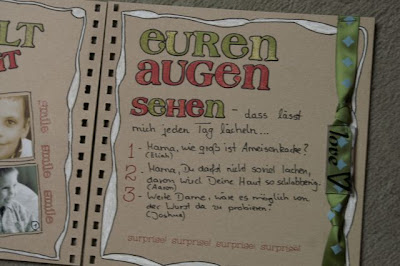 LT
HT
smile smile smile
EUREN
AUGEN
SEHEN - dass lässt
mich jeden Tag lächeln...
1 - Mama, wie groß ist Ameisenkacke?
(Eliah)
2 - Mama, Du darfst nicht soviel lachen,
davon wird Deine Haut so schlabberig.
(Aaron)
3 - Werte Dame, wäre es möglich von
der Wurst da zu probieren?
(Joshua)
surprise! surprise! surprise! surprise!
love